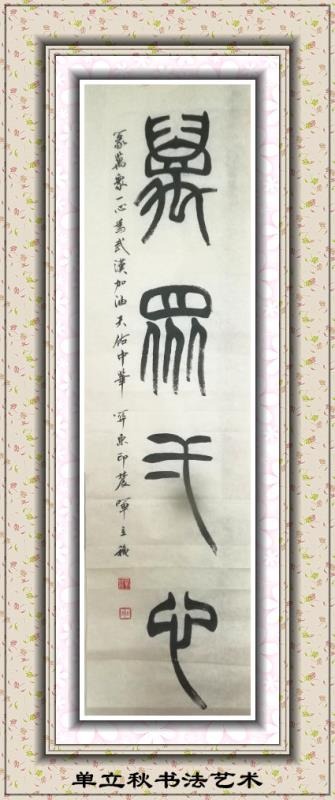 萬眾一心
篆萬衆一心為武漢加油天佑中華 東印農單立秋
单立秋书法艺术